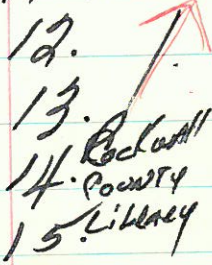 12.
13.
Rockwall
14. County
15. Library